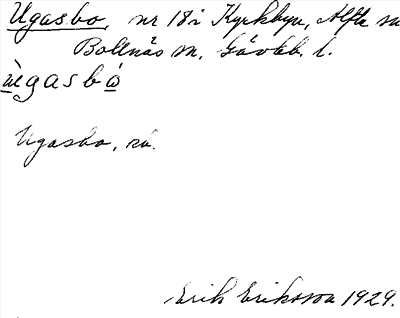 Ugasbo, nr 18 i Kyrkbyn, Alfta sn
Bollnäs sn, Gävleb. l.
ùgasbò
Ugasbo, rå.
Erik Eriksson 1929.